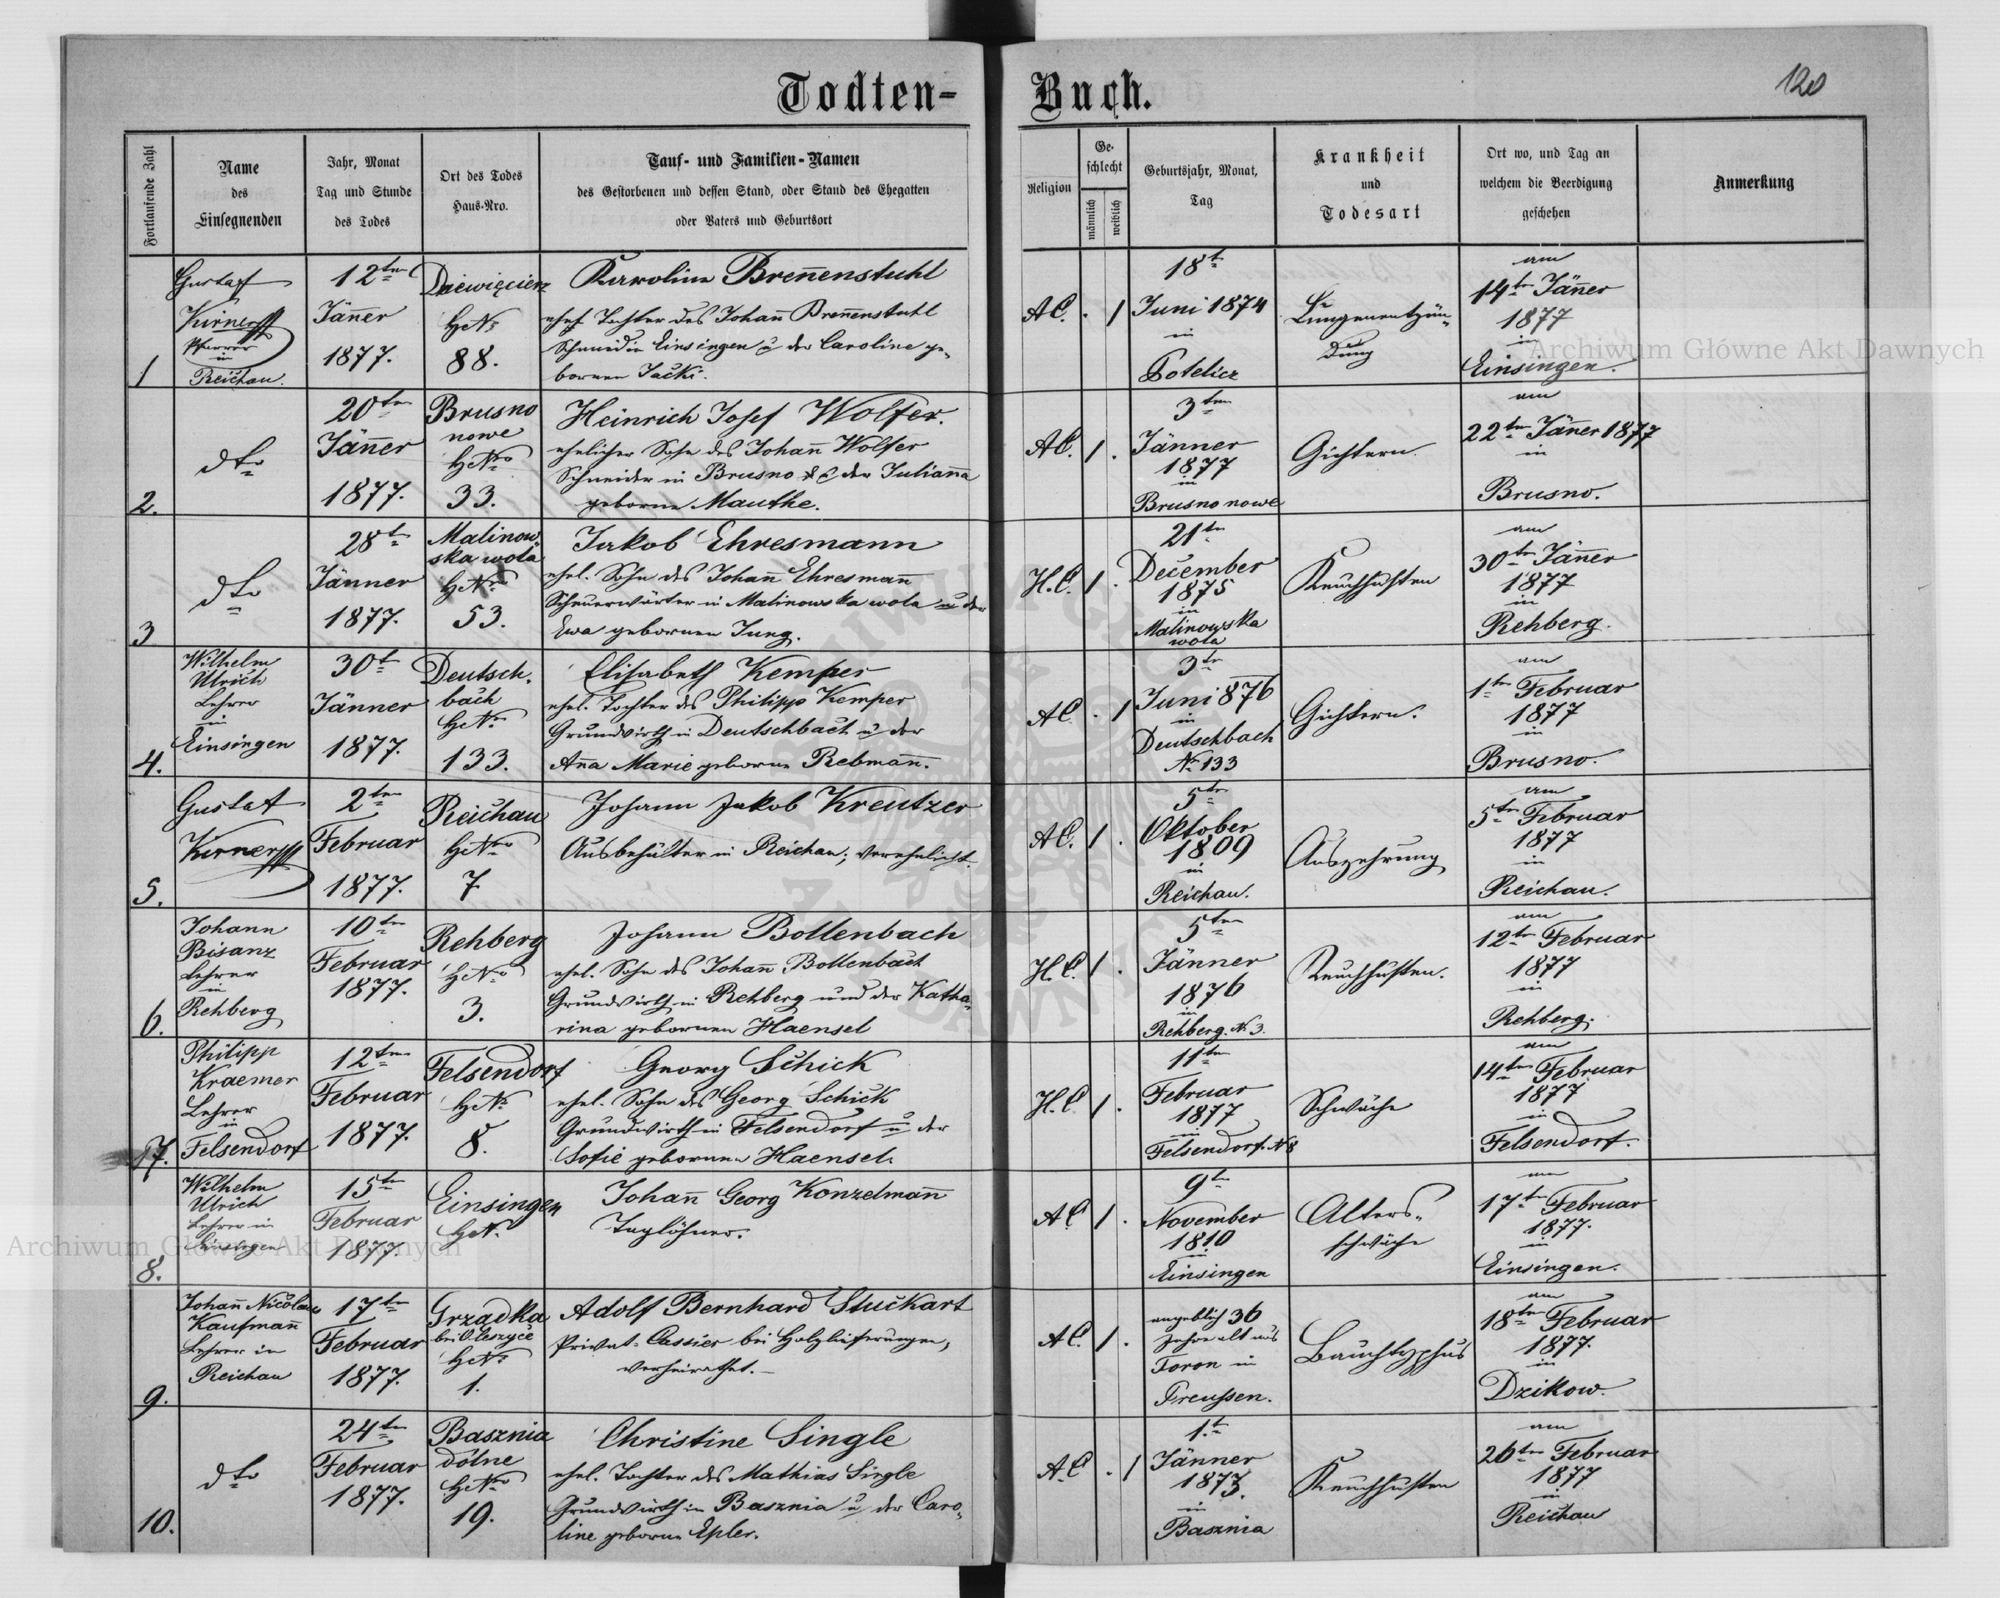 Todten- Buch.
120
Fortlaufende Zahl
Name
des
Einsegnenden
Jahr, Monat
Tag und Stunde
des Todes
Ort des Todes
Haus-Nro.
Tauf- und Familien-Namen
des Gestorbenen und dessen Stand, oder Stand des Ehegatten
oder Vaters und Geburtsort
Religion
Ge-
schlecht
männlich
weiblich
Geburtsjahr, Monat,
Tag
Krankheit
und
Todesart
Ort wo, und Tag an
welchem die Beerdigung
geschehen
Anmerkung
1
Gustaf
Kirner
Pfarrer
in
Reichau.
12ten
Jäner
1877.
HN
88.
Karoline Brenenstuhl
ehel. Tochter des Johan Brenenstuhl
Schmied in Einsingen u der Caroline ge-
bornen Jacki.
A.C. . 1
18t
Juni 1874
in
Potelicz
Lungenentzün-
dung
am
14t Jäner
1877
in
Einsingen.
2.
dto
20ten
Jäner
1877.
Brusno
nowe
HNo
33.
Heinrich Josef Wolfer.
ehelicher Sohn des Johan Wolfer
Schneider in Brusno & der Juliana
geborne Mauthe.
A.C. 1 .
3ten
Jänner
1877
in
Brusno nowe
Gichtern.
am
22ten Jäner 1877
in
Brusno.
3
dto
28t
Jänner
1877.
Malinow
ska wola
HNo
53.
Jakob Ehresmann
ehel. Sohn des Johan Ehresman
Scheuerwärter in Malinowska wola u der
Ewa gebornen Jung.
H.C. 1 .
21ten
December
1875
in
Malinowska
wola
Keuchhusten
am
30ten Jäner
1877
in
Rehberg.
4.
Wilhelm
Ulrich
Lehrer
in
Einsingen
30t
Jänner
1877.
Deutsch.
bach
HNo
133.
Elisabeth Kemper
ehel. Tochter des Philipp Kemper
Grundwirth in Deutschbach u der
Ana Marie geborne Rebman.
A.C. . 1
3ten
Juni 876
in
Deutschbach
No 133
Gichtern.
am
1ten Februar
1877
in
Brusno.
5.
Gustaf
Kirner
2ten
Februar
1877.
Reichau
HNro
7
Johann Jakob Kreutzer
Ausbehälter in Reichau; verehelicht.
A.C. 1 .
5ten
Oktober
1809
in
Reichau.
Auszehrung
am
5ten Februar
1877
in
Reichau.
6.
Johann
Bisanz
Lehrer
in
Rehberg
10ten
Februar
1877.
Rehberg
HNo
3.
Johann Bollenbach
ehel. Sohn des Johan Bollenbach
Grundwirth in Rehberg und der Katha-
rina gebornen Haensel
H.C. 1 .
5ten
Jänner
1876
in
Rehberg. N. 3.
Keuchhusten.
am
12ten Februar
1877
in
Rehberg.
7.
Philipp
Kraemer
Lehrer
in
Felsendorf
12ten
Februar
1877.
Felsendorf
HN
8.
Georg Schick
ehel. Sohn des Georg Schick
Grundwirth in Felsendorf u der
Sofie gebornen Haensel.
H.C. 1 .
11ten
Februar
1877
in
Felsendorf. N 8
Schwäche
am
14ten Februar
1877
in
Felsendorf.
8.
Wilhelm
Ulrich
Lehrer in
Einsingen
15ten
Februar
1877.
Einsingen
HN.
Johan Georg Konzelman
Taglöhner.
A.C. 1 .
9ten
November
1810
in
Einsingen
Alters-
schwäche
am
17ten Februar
1877.
in
Einsingen.
9.
Johan Nicolaus
Kaufman
Lehrer in
Reichau
17ten
Februar
1877.
Grzadka
bei Oleszyce
HNo
1.
Adolf Bernhard Stuckart
Privat-Cassier bei Holzlieferungen,
verheirathet. –
A.C. 1 .
angeblich 36
Jahre alt aus
Toron in
Preussen.
Bauchtyphus
am
18ten Februar
1877.
in
Dzikow.
10.
dto
24ten
Februar
1877.
Basznia
dolne
HNo
19.
Christine Single
ehel. Tochter des Mathias Single
Grundwirth in Basznia u der Caro-
line geborne Epler.
A.C. . 1
1.t
Jänner
1873.
in
Basznia
Keuchhusten
am
26ten Februar
1877
in
Reichau
Archiwum Główne Akt Dawnych
Archiwum Główne Akt Dawnych